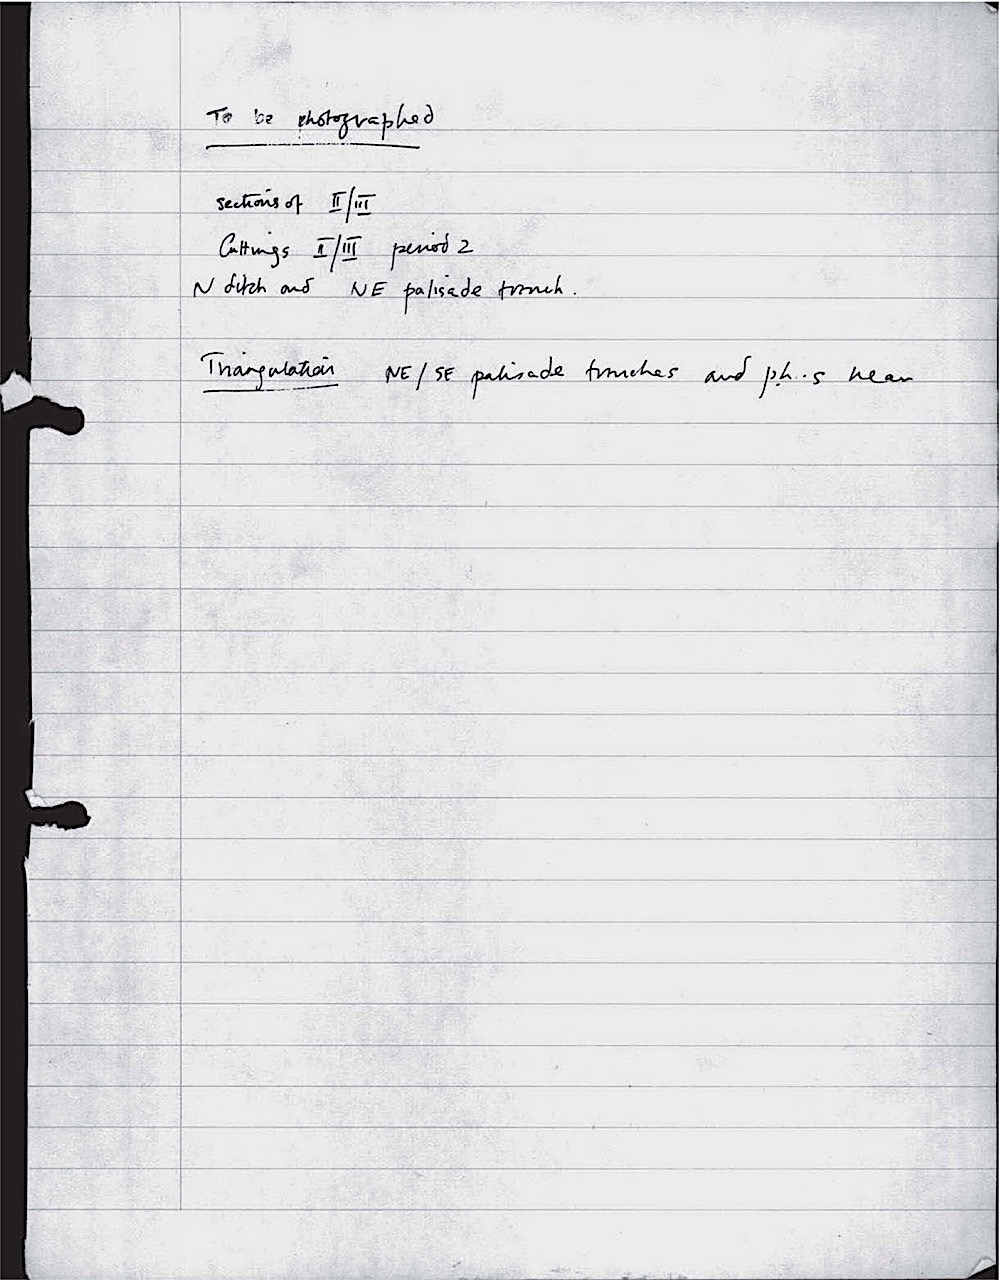 To be photographed
sections of II/III
Cuttings II/III period 2
N ditch and NE palisade trench.
Triangulation NE/SE palisade trenches and p.h.s near